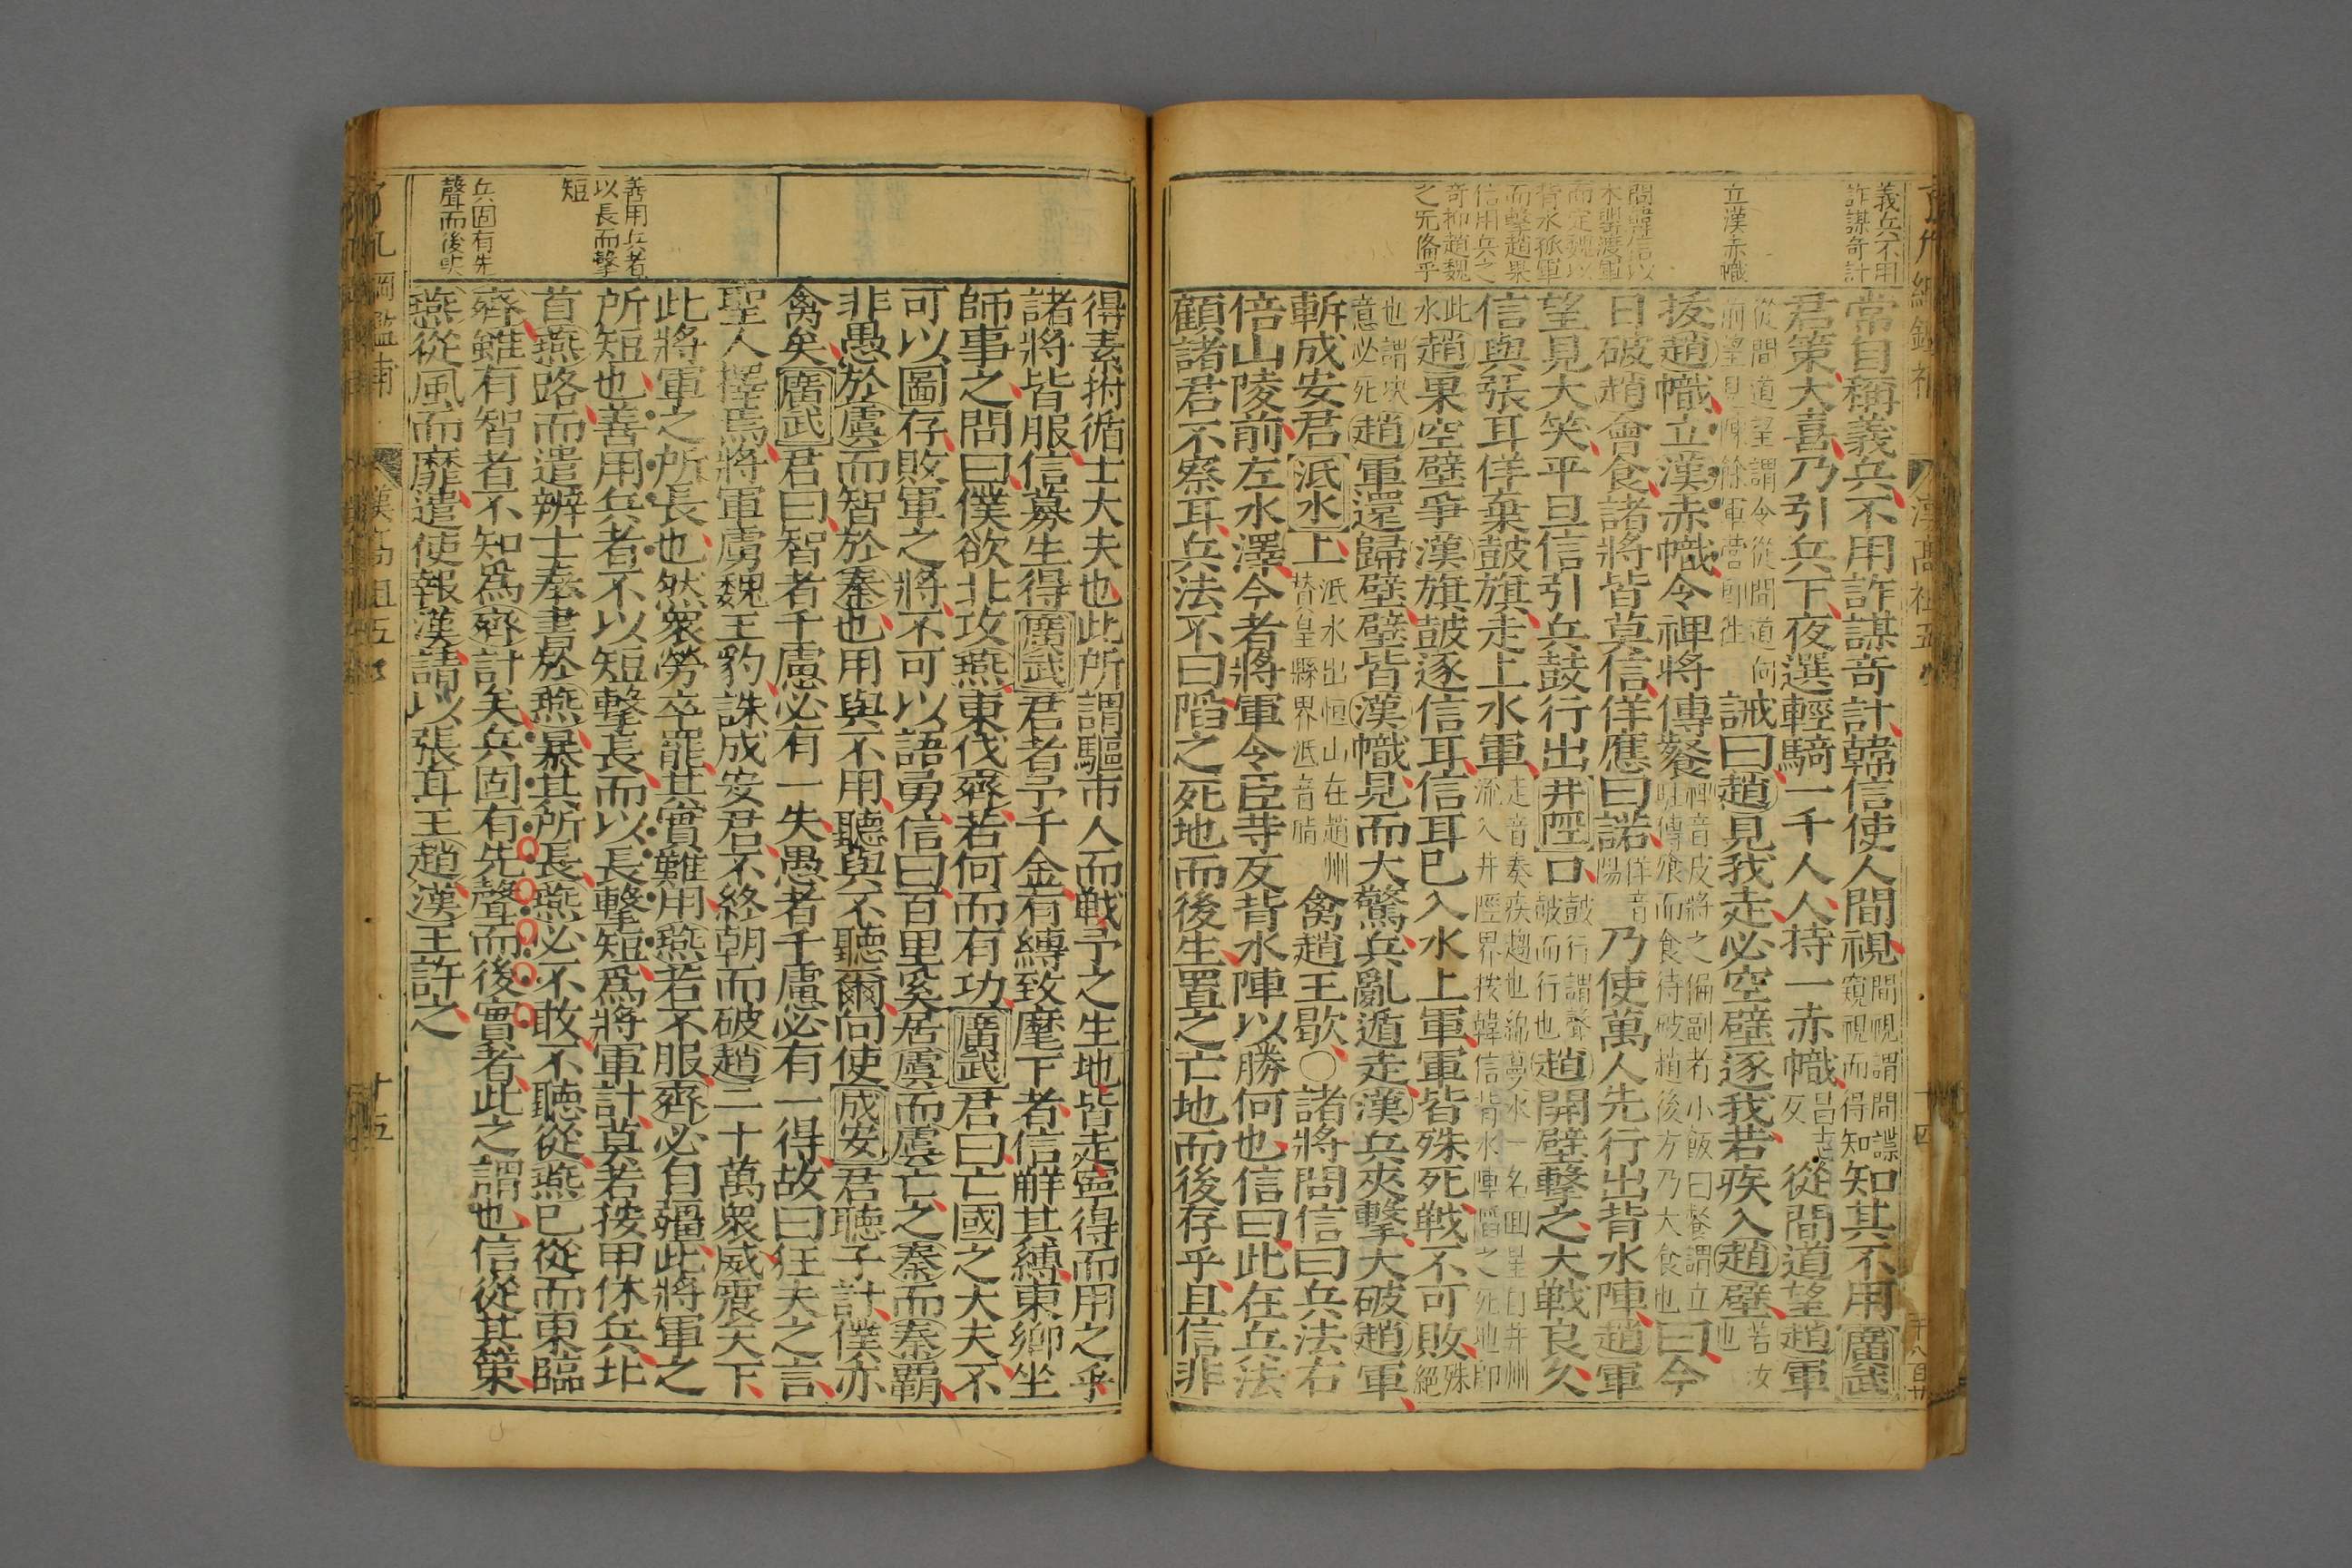 義兵不用
詐謀奇計
立漢赤幟
問韓信以
木罌渡軍
而定魏以
背水孤軍
而擊趙果
信用兵之
奇抑趙魏
之无俻乎
常自稱義兵不用詐謀奇計韓信使人間視間視謂間諜窺視而得知知其不用廣武
君策大喜乃引兵下夜選輕騎一千人人持一赤幟昌志反從間道望趙軍
從間道望謂令從間道向前望見陳餘軍營即住誡曰趙見我走必空壁逐我若疾入趙壁若汝也
拔趙幟立漢赤幟令裨將傳餐裨音皮將之偏副者小飯曰餐謂立駐傳飱而食待破趙後方乃大食也曰今
日破趙會食諸將皆莫信佯應曰諾佯音陽乃使萬人先行出背水陣趙軍
望見大笑平旦信引兵鼓行出井陘口鼓行謂聲鼓而行也趙開壁擊之大戰良久
信與張耳佯棄鼓旗走上水軍走音奏疾趨也綿蔓水一名囬星自并州流入井陘界按韓信背水陣陷之死地即
此水趙果空壁爭漢旗鼓逐信耳信耳已入水上軍軍皆殊死戰不可敗殊絕
也謂决意必死趙軍還歸壁壁皆漢幟見而大驚兵亂遁走漢兵夾擊大破趙軍
斬成安君泜水上泜水出恒山在趙州贊皇縣界泜音脂禽趙王歇○諸將問信曰兵法右
倍山陵前左水澤今者將軍令臣等反背水陣以勝何也信曰此在兵法
顧諸君不察耳兵法不曰陷之死地而後生置之亡地而後存乎且信非
漢高祖五年
十四
善用兵者
以長而擊
短
兵固有先
聲而後實
得素拊循士大夫也此所謂驅市人而戰予之生地皆走寧得而用之乎
諸將皆服信募生得廣武君者予千金有縛致麾下者信解其縛東鄉坐
師事之問曰僕欲北攻燕東伐齊若何而有功廣武君曰亡國之大夫不
可以圖存敗軍之將不可以語勇信曰百里奚居虞而虞亡之秦而秦霸
非愚於虞而智於秦也用與不用聽與不聽爾向使成安君聴子計僕亦
禽矣廣武君曰智者千慮必有一失愚者千慮必有一得故曰狂夫之言
聖人擇焉將軍虜魏王豹誅成安君不終朝而破趙二十萬衆威震天下
此將軍之所長也然衆勞卒罷其實難用燕若不服齊必自彊此將軍之
所短也善用兵者不以短擊長而以長擊短爲將軍計莫若按甲休兵北
首燕路而遣辨士奉書於燕暴其所長燕必不敢不聽從燕已從而東臨
齊雖有智者不知爲齊計矣兵固有先聲而後實者此之謂也信從其策
燕從風而靡遣使報漢請以張耳王趙漢王許之
漢高祖五年
十五